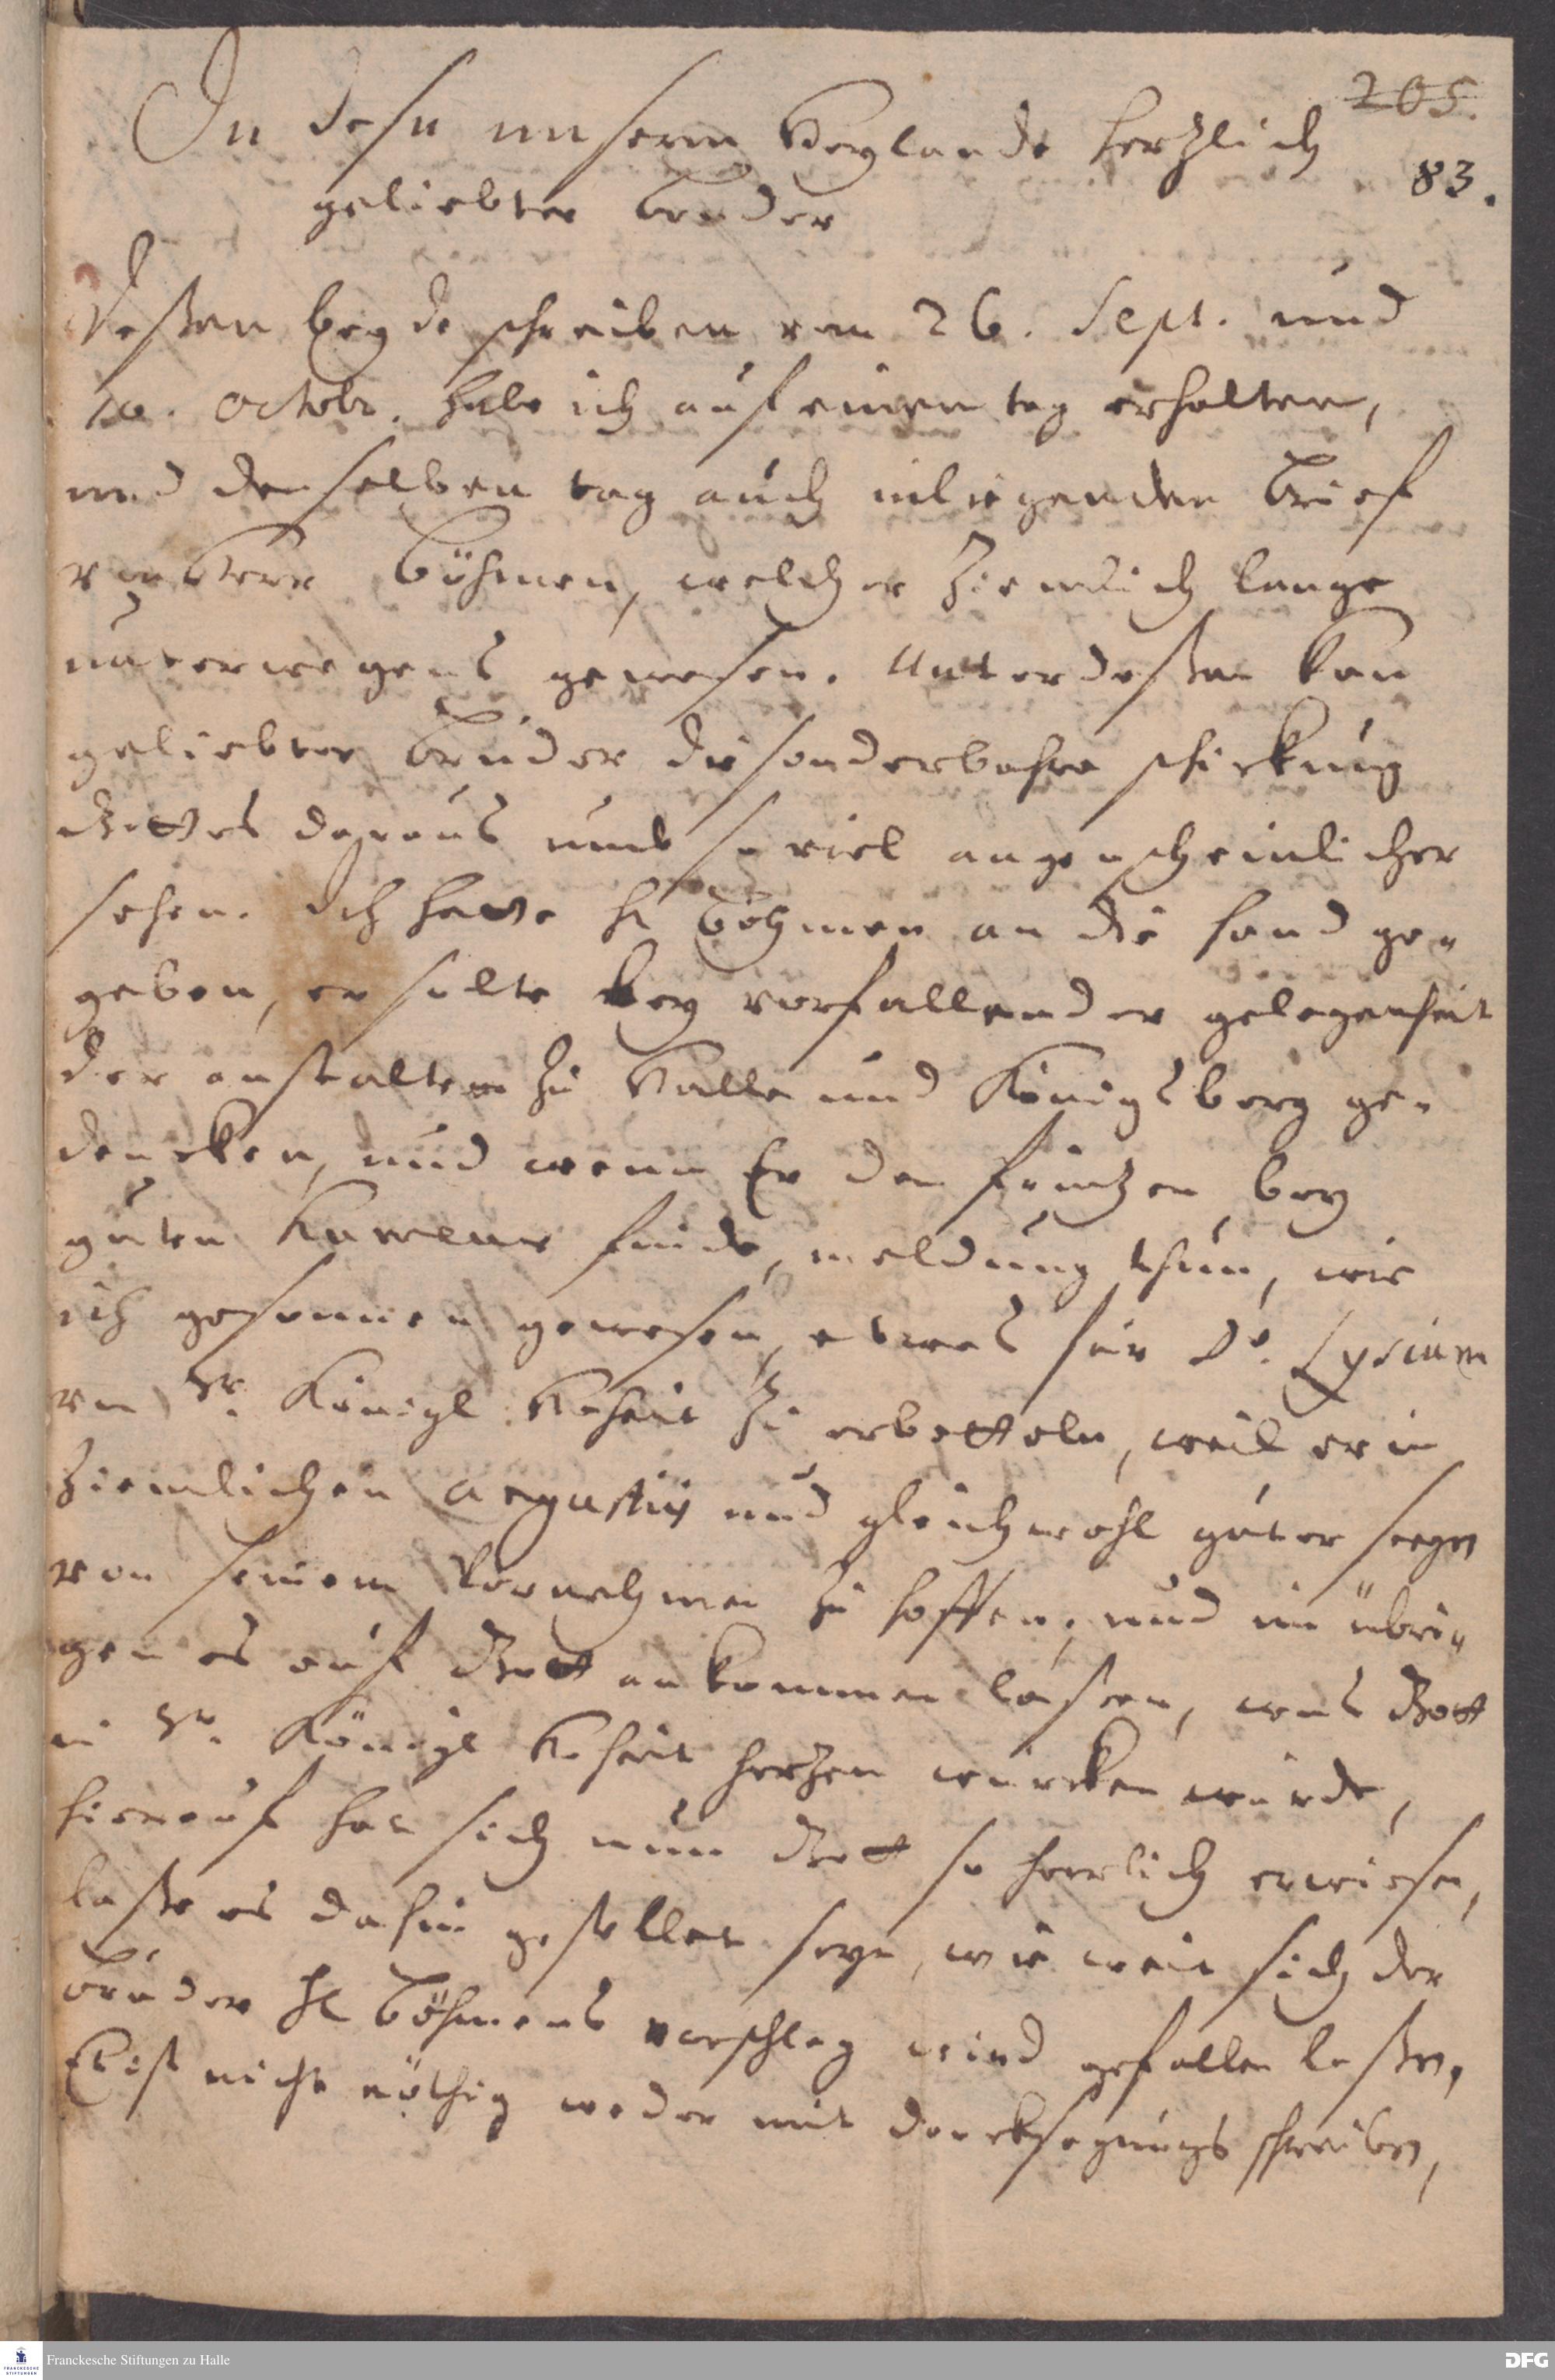 205.
83.
In Jesu unserm Heylande hertzlich
geliebter Bruder
Deßen beyde schreiben vom 26. Sept. und
10. Octobr. habe ich auf einen tag erhalten,
und denselben tag auch inliegenden Brief
von Herr Böhmen, welcher ziemlich lange
unterwegens gewesen. Unterdeßen kan
geliebter Bruder die sonderbahre schickung
Gottes daraus umb so viel augenscheinlicher
sehen. Ich hatte H Böhmen an die hand ge-
geben, er solte bey vorfallender gelegenheit
der anstalten zu Halle und Königsberg ge-
dencken, und wenn Er den printzen bey
guten humeur finde, meldung thun, wie
ich gesonnen gewesen, etwas für D. Lysium
von Sr. Königl. Hoheit zu erbetteln, weil er in
ziemlichen angustiis und gleichwohl guter seegen
von seinem Vornehmen zu hoffen, und im übri-
gen es auf Gott ankommen lassen, was Gott
in Sr. Königl Hoheit hertzen wircken würde,
hierauf hat sich nun Gott so herrlich erwiesen,
laße es dahin gestellet seyn, wie weit sich der
Bruder H Böhmens vorschlag wird gefallen laßen,
Es ist nicht nöthig weder mit dancksagungs schreiben,
Franckesche Stiftungen zu Halle
FRANCKESCHE STIFTUNGEN
DFG